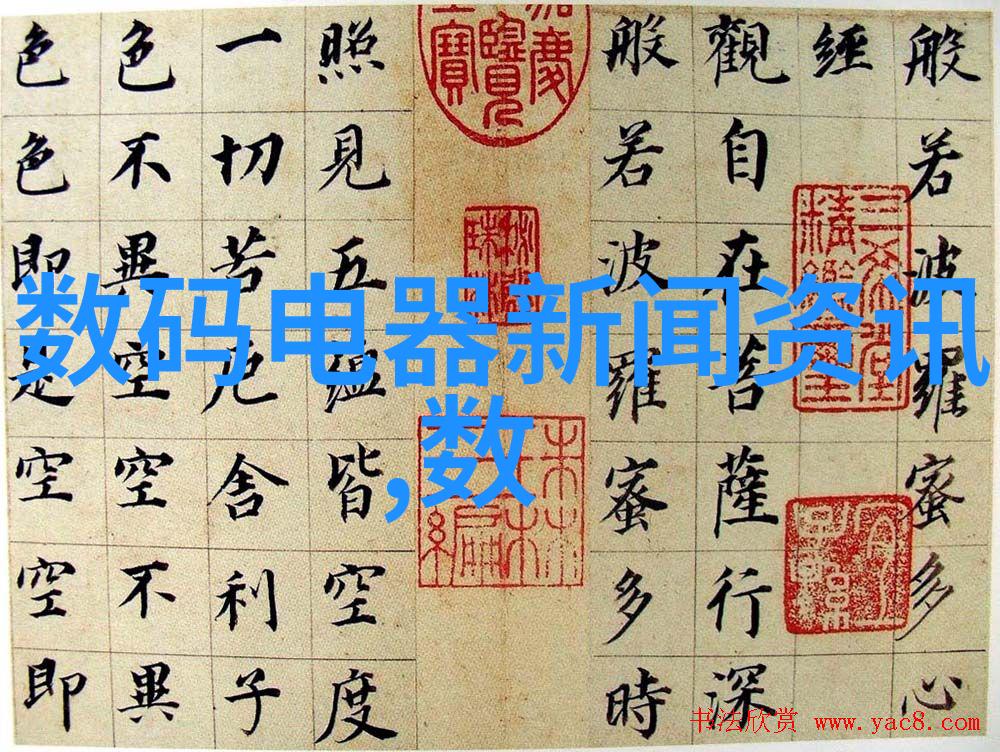 般若波羅蜜多心
經
觀自在菩薩行深
般若波羅蜜多時
照見五蘊皆空度
一切苦厄舍利子
色不異空空不異
色色即是空空即
三希堂
精鑑璽
数码电器新闻资讯
,数
书法欣赏 www.yac8.com